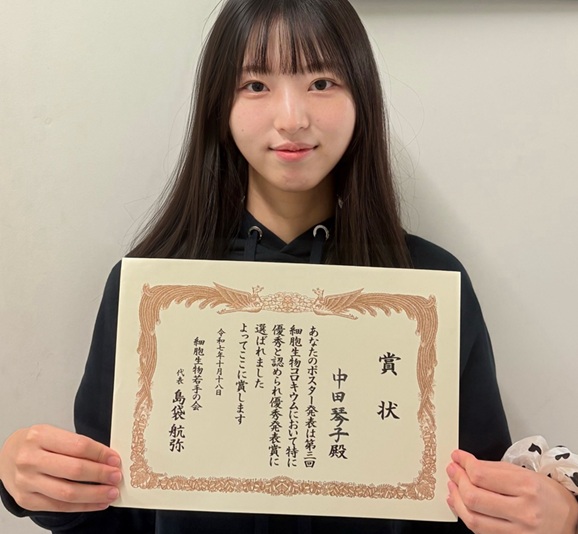 賞状
中田琴子殿
あなたのポスター発表は第三回
細胞生物コロキウムにおいて特に
優秀と認められ優秀発表賞に
選ばれました
よってここに賞します
令和七年十月十八日
細胞生物若手の会
代表 島袋航弥